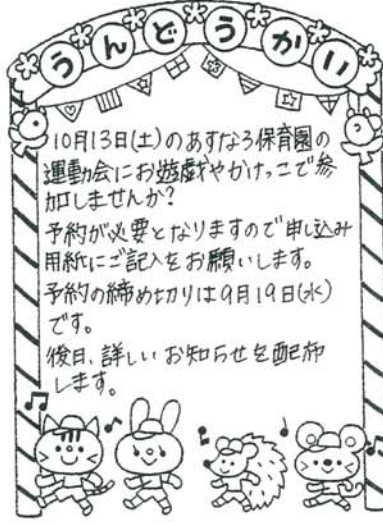 うんどうかい
10月13日(土)のあすなろ保育園の
運動会にお遊戯やかけっこで参
加しませんか?
予約が必要となりますので申し込み
用紙にご記入をお願いします。
予約の締め切りは9月19日(水)
です。
後日、詳しいお知らせを配布
します。